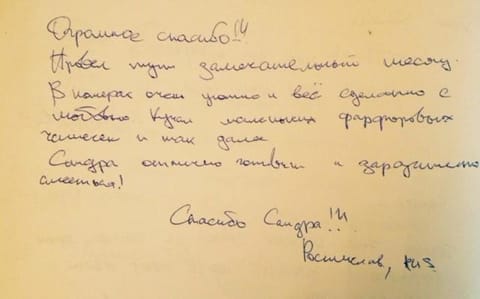 Огромное спасибо!!!
Провел тут замечательный месяц.
В номерах очен уютно и всё сделанно с
любовью Кучи маленьких фарфоровых
чашечек и так далее
Сандра отлично готовит и заразительно
смееться!
Спасибо Сандра!!!
Ростислав, RUS